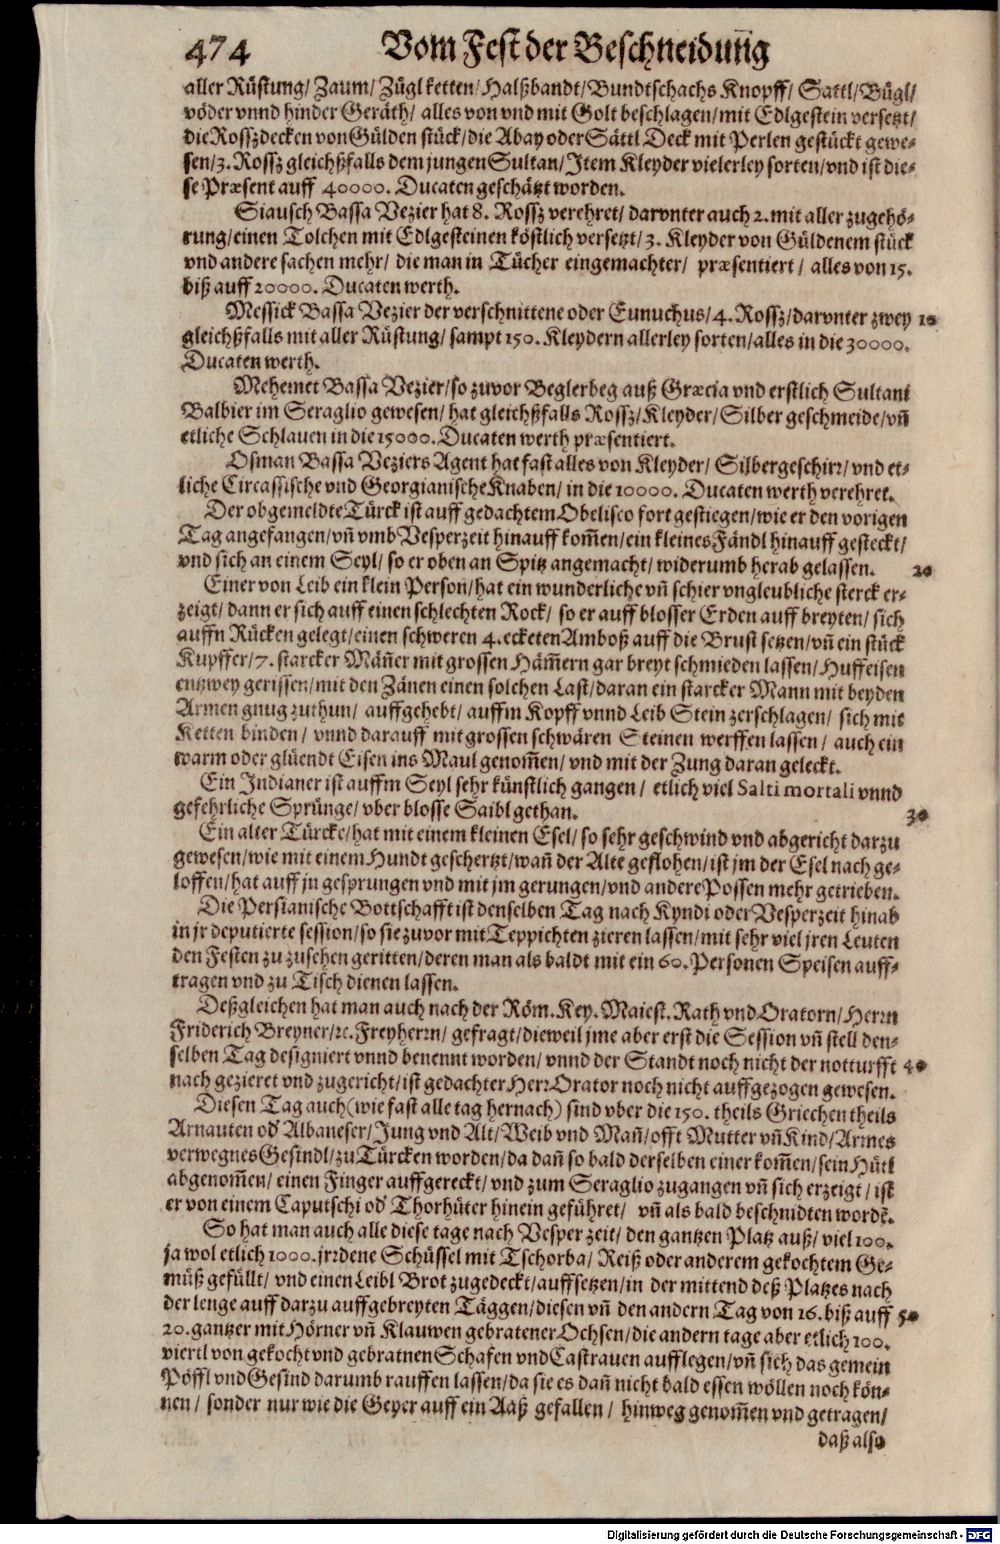 474 Vom Fest der Beschneidung̃
aller Rüstung/ Zaum/ Zügl ketten/ Halßbandt/ Bundtschachs Knopff/ Sattl/ Bügl/
vöder vnnd hinder Geräth/ alles von vnd mit Golt beschlagen/ mit Edlgestein versetzt/
die Rossz decken von Gülden stück/ die Abay oder Sättl Deck mit Perlen gestückt gewe-
sen/ 3. Rossz gleichßfalls dem jungen Sultan/ Item Kleyder vielerley sorten/ vnd ist die-
se Præsent auff 40000. Ducaten geschätzt worden.
Siausch Bassa Vezier hat 8. Rossz verehret/ darvnter auch 2. mit aller zugehö-
rung/ einen Tolchen mit Edlgesteinen köstlich versetzt/ 3. Kleyder von Güldenem stück
vnd andere sachen mehr/ die man in Tücher eingemachter/ præsentiert/ alles von 15.
biß auff 20000. Ducaten werth.
Messick Bassa Vezier der verschnittene oder Eunuchus/ 4. Rossz/ darvnter zwey 10
gleichßfalls mit aller Rüstung/ sampt 150. Kleydern allerley sorten/ alles in die 30000.
Ducaten werth.
Mehemet Bassa Vezier/ so zuvor Beglerbeg auß Græcia vnd erstlich Sultani
Balbier im Seraglio gewesen/ hat gleichßfalls Rossz/ Kleyder/ Silber geschmeide/ vñ
etliche Schlauen in die 15000. Ducaten werth præsentiert.
Osman Bassa Veziers Agent hat fast alles von Kleyder/ Silbergeschirr/ vnd et-
liche Circassische vnd Georgianische Knaben/ in die 10000. Ducaten werth verehret.
Der obgemeldte Türck ist auff gedachtem Obelisco fort gestiegen/ wie er den vorigen
Tag angefangen/ vñ vmb Vesperzeit hinauff kom̃en/ ein kleines Fändl hinauff gesteckt/
vnd sich an einem Seyl/ so er oben an Spitz angemacht/ widerumb herab gelassen. 20
Einer von Leib ein klein Person/ hat ein wunderliche vñ schier vngleubliche sterck er-
zeigt/ dann er sich auff einen schlechten Rock/ so er auff blosser Erden auff breyten/ sich
auffn Rücken gelegt/ einen schweren 4. ecketen Amboß auff die Brust setzen/ vñ ein stück
Kupffer/ 7. starcker Mäñer mit grossen Häm̃ern gar breyt schmieden lassen/ Huffeisen
entzwey gerissen/ mit den Zänen einen solchen Last/ daran ein starcker Mann mit beyden
Armen gnug zuthun/ auffgehebt/ auffm Kopff vnnd Leib Stein zerschlagen/ sich mit
Ketten binden/ vnnd darauff mit grossen schwären Steinen werffen lassen/ auch ein
warm oder glüendt Eisen ins Maul genom̃en/ vnd mit der Zung daran geleckt.
Ein Indianer ist auffm Seyl sehr künstlich gangen/ etlich viel Salti mortali vnnd
gefehrliche Sprünge/ vber blosse Saibl gethan. 30
Ein alter Türcke/ hat mit einem kleinen Esel/ so sehr geschwind vnd abgericht darzu
gewesen/ wie mit einem Hundt geschertzt/ wañ der Alte geflohen/ ist jm der Esel nach ge-
loffen/ hat auff jn gesprungen vnd mit jm gerungen/ vnd andere Possen mehr getrieben.
Die Persianische Bottschafft ist denselben Tag nach Kyndi oder Vesperzeit hinab
in jr deputierte session/ so sie zuvor mit Teppichten zieren lassen/ mit sehr viel jren Leuten
den Festen zu zusehen geritten/ deren man als baldt mit ein 60. Personen Speisen auff-
tragen vnd zu Tisch dienen lassen.
Deßgleichen hat man auch nach der Röm. Key. Maiest. Rath vnd Oratorn/ Herrn
Friderich Breyner/ ꝛc. Freyherrn/ gefragt/ dieweil jme aber erst die Session vñ stell den-
selben Tag designiert vnnd benennt worden/ vnnd der Standt noch nicht der notturfft 40
nach gezieret vnd zugericht/ ist gedachter Herr Orator noch nicht auffgezogen gewesen.
Diesen Tag auch (wie fast alle tag hernach) sind vber die 150. theils Griechen theils
Arnauten od' Albaneser/ Jung vnd Alt/ Weib vnd Mañ/ offt Mutter vñ Kind/ Armes
verwegnes Gesindl/ zu Türcken worden/ da dañ so bald derselben einer kom̃en/ sein Hütl
abgenom̃en/ einen Finger auffgereckt/ vnd zum Seraglio zugangen vñ sich erzeigt/ ist
er von einem Caputschi od' Thorhüter hinein geführet/ vñ als bald beschnidten wordẽ.
So hat man auch alle diese tage nach Vesper zeit/ den gantzen Platz auß/ viel 100.
ja wol etlich 1000. jrꝛdene Schüssel mit Tschorba/ Reiß oder anderem gekochtem Ge-
müß gefüllt/ vnd einen Leibl Brot zugedeckt/ auffsetzen/ in der mittend deß Platzes nach
der lenge auff darzu auffgebreyten Täggen/ diesen vñ den andern Tag von 16. biß auff 50
20. gantzer mit Hörner vñ Klauwen gebratener Ochsen/ die andern tage aber etlich 100.
viertl von gekocht vnd gebratnen Schafen vnd Castrauen aufflegen/ vñ sich das gemein
Pöffl vnd Gesind darumb rauffen lassen/ da sie es dañ nicht bald essen wöllen noch kön-
nen/ sonder nur wie die Geyer auff ein Aaß gefallen/ hinweg genom̃en vnd getragen/
daß also
Digitalisierung gefördert durch die Deutsche Forschungsgemeinschaft - DFG